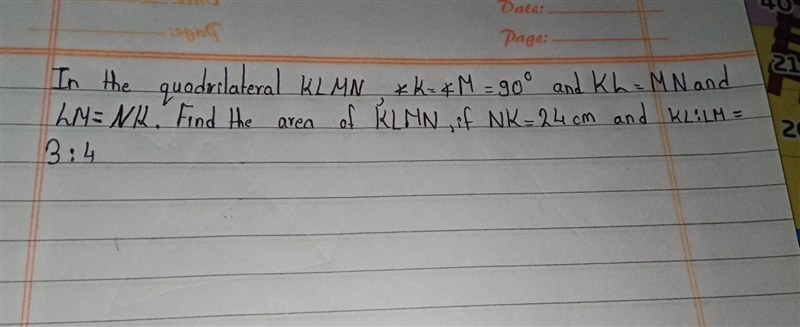 Date:
Page:
Date:
Page:
40
21
20
In the quadrilateral KLMN, ∠K=∠M=90° and KL=MN and
LM=NK. Find the area of KLMN, if NK=24cm and KL:LM=
3:4